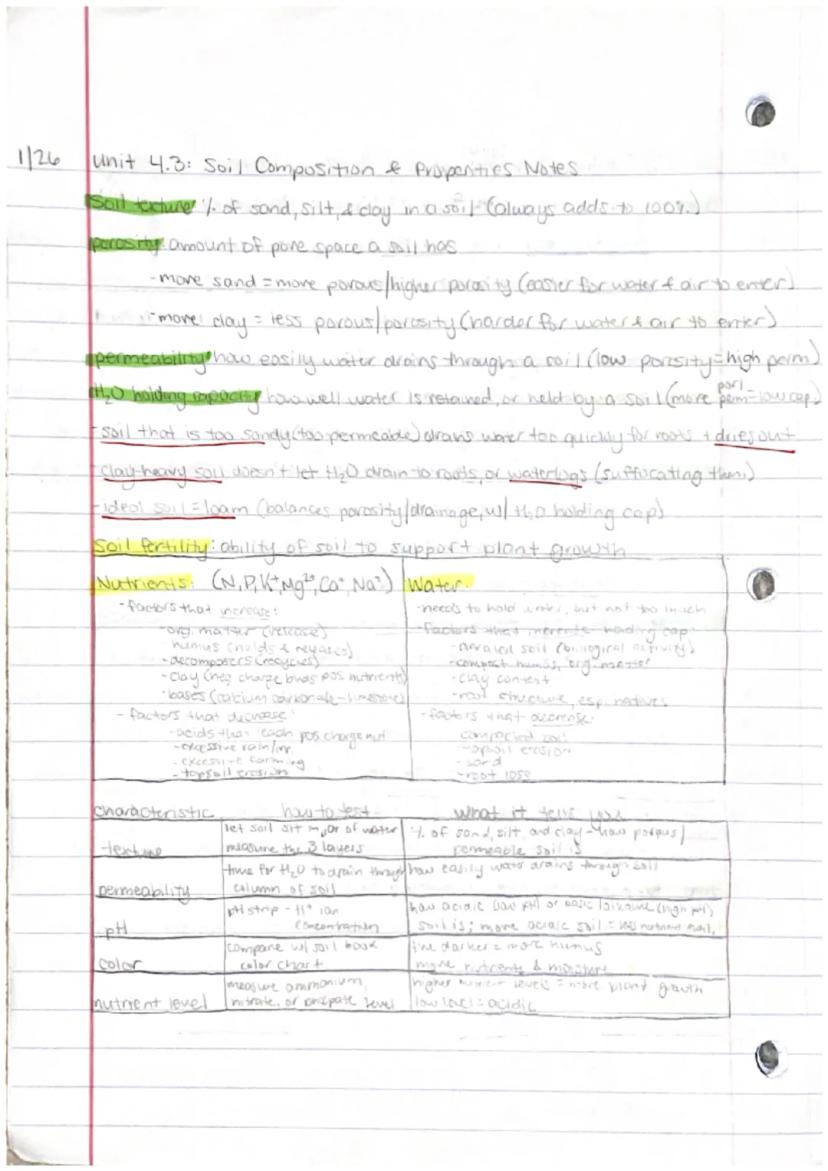 1/26 Unit 4.3: Soil Composition & Properties Notes
Soil texture % of sand, silt, & clay in a soil (always adds to 100%)
porosity amount of pore space a soil has
-more sand = more porous/higher porosity (easier for water & air to enter)
-more clay = less porous/porosity (harder for water & air to enter)
permeability how easily water drains through a soil (low porosity=high perm)
pori
H₂O holding capacity how well water is retained, or held by a soil (more perm=low cap)
-soil that is too sandy (too permeable) drains water too quickly for roots + dries out
-clay-heavy soil doesn't let H₂O drain to roots, or waterlogs (suffocating them)
-ideal soil = loam (balances porosity/drainage, w/ H₂O holding cap)
Soil fertility: ability of soil to support plant growth
Nutrients: (N, P, K⁺, Mg²⁺, Ca⁺, Na⁺)
-factors that increase:
-org. matter (release)
humus (holds & releases)
-decomposers (recycles)
-clay (neg charge binds pos nutrients)
-bases (calcium carbonate - limestone)
-factors that decrease:
-acids that leach pos charge nut
-excessive rain/irr.
-excessive farming
-topsoil erosion
Water:
-needs to hold water, but not too much
-factors that increase holding cap
-aerated soil (biological activity)
-compost humus, org. matter
-clay content
-root structure, esp. natives
-factors that decrease:
compacted soil
-topsoil erosion
-sand
-root loss
characteristic how to test what it tells you
-texture let soil sit in jar of water % of sand, silt, and clay - how porous/
measure the 3 layers permeable soil is
permeability time for H₂O to drain through how easily water drains through soil
column of soil
pH pH strip - H⁺ ion how acidic (low pH) or basic/alkaline (high pH)
concentration soil is; more acidic soil = less nutrient avail.
color compare w/ soil book darker = more humus
color chart more nutrients & moisture
nutrient level measure ammonium, higher nutrient levels = more plant growth
nitrate, or level low level = acidic